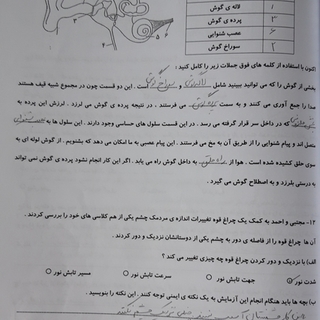 ۱ لاله ی گوش
۳ پرده ی گوش
۶ عصب شنوایی
۲ سوراخ گوش
۴
اکنون با استفاده از کلمه های فوق جملات زیر را کامل کنید :
بخشی از گوش را که می توانید ببینید شامل لاله گوش و سوراخ گوش است . این دو قسمت چون در مجموع شبیه قیف هستند
صدا را جمع آوری می کنند و به سمت می فرستند . در نتیجه پرده ی گوش می لرزد . لرزش این پرده به
که در داخل سر قرار گرفته می رسد . در این قسمت سلول های حساسی وجود دارند . این سلول ها به
متصل اند و پیام شنوایی را از طریق آن به مغ می فرستند . این پیام عصبی به ما امکان می دهد که بشنویم . از گوش لوله ای به
سوی حلق کشیده شده است . هوا از راه حلق به داخل گوش راه می یابد . اگر این کار انجام نشود پرده ی گوش نمی تواند
به درستی بلرزد و به اصطلاح گوش می گیرد .
۱۲- مجتبی و احمد به کمک یک چراغ قوه تغییرات اندازه ی مردمک چشم یکی از هم کلاسی های خود را بررسی کردند .
آن ها چراغ قوه را از فاصله ی دور به چشم یکی از دوستانشان نزدیک و دور کردند .
الف) با نزدیک و دور کردن چراغ قوه چه چیزی تغییر می کند ؟
شدت نور جهت تابش نور سرعت تابش نور مسیر تابش نور
ب) بچه ها باید هنگام انجام این آزمایش به یک نکته ی ایمنی توجه کنند . این نکته را بنویسید .